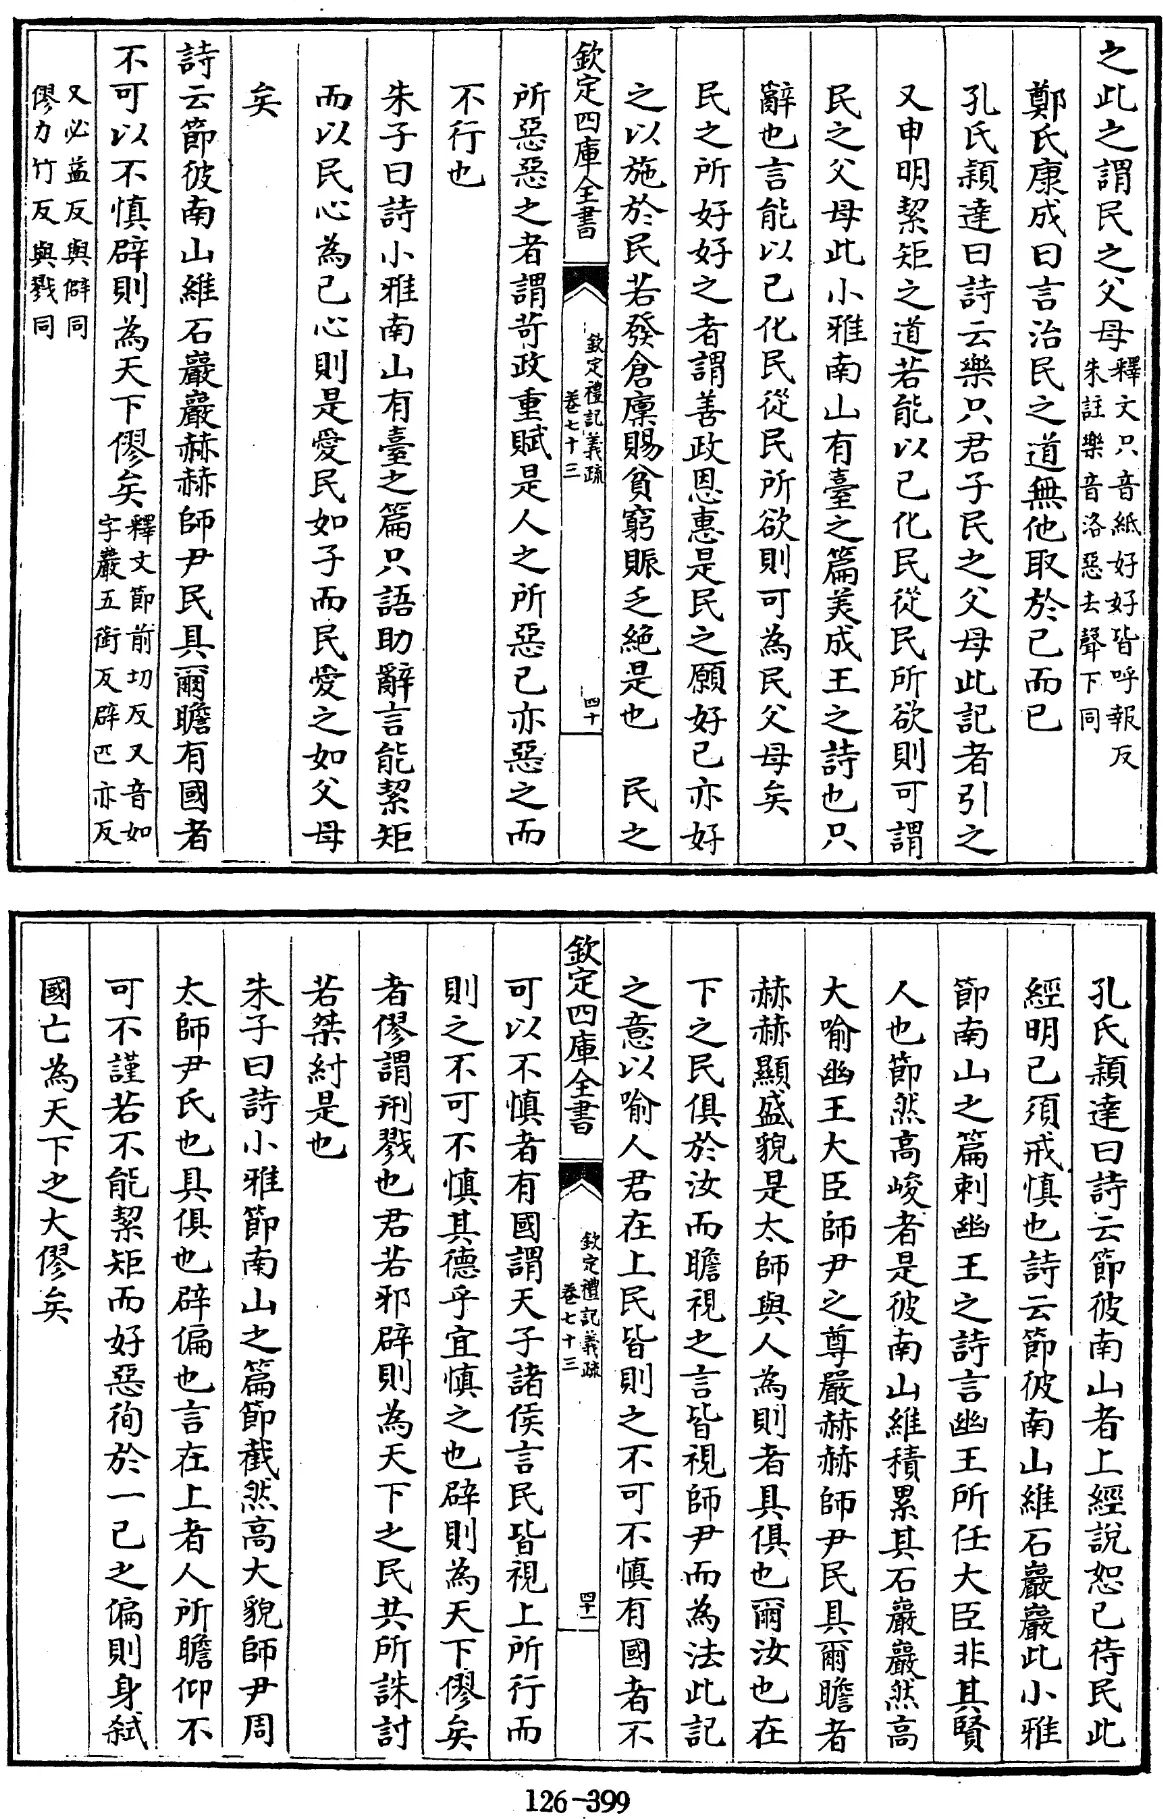 之此之謂民之父母釋文只音紙好好皆呼報反
朱註樂音洛惡去聲下同
鄭氏康成曰言治民之道無他取於己而已
孔氏穎達曰詩云樂只君子民之父母此記者引之
又申明絜矩之道若能以己化民從民所欲則可謂
民之父母此小雅南山有臺之篇美成王之詩也只
辭也言能以己化民從民所欲則可為民父母矣
民之所好好之者謂善政恩惠是民之願好己亦好
之以施於民若發倉廩賜貧窮賑乏絕是也　民之
欽定四庫全書
欽定禮記義疏
卷七十三
四十
所惡惡之者謂苛政重賦是人之所惡己亦惡之而
不行也
朱子曰詩小雅南山有臺之篇只語助辭言能絜矩
而以民心為己心則是愛民如子而民愛之如父母
矣
詩云節彼南山維石巖巖赫赫師尹民具爾瞻有國者
不可以不慎辟則為天下僇矣釋文節前切反又音如
字巖五銜反辟匹亦反
又必益反與僻同
僇力竹反與戮同
孔氏穎達曰詩云節彼南山者上經說恕己待民此
經明己須戒慎也詩云節彼南山維石巖巖此小雅
節南山之篇刺幽王之詩言幽王所任大臣非其賢
人也節然高峻者是彼南山維積累其石巖巖然高
大喻幽王大臣師尹之尊嚴赫赫師尹民具爾瞻者
赫赫顯盛貌是太師與人為則者具俱也爾汝也在
下之民俱於汝而瞻視之言皆視師尹而為法此記
之意以喻人君在上民皆則之不可不慎有國者不
欽定四庫全書
欽定禮記義疏
卷七十三
四十一
可以不慎者有國謂天子諸侯言民皆視上所行而
則之不可不慎其德乎宜慎之也辟則為天下僇矣
者僇謂刑戮也君若邪辟則為天下之民共所誅討
若桀紂是也
朱子曰詩小雅節南山之篇節截然高大貌師尹周
太師尹氏也具俱也辟偏也言在上者人所瞻仰不
可不謹若不能絜矩而好惡徇於一己之偏則身弒
國亡為天下之大僇矣
126-399